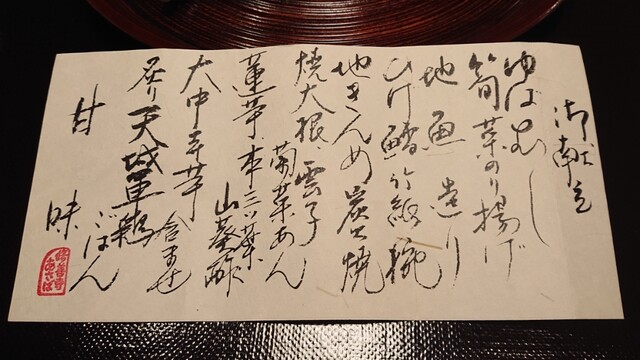 御献立
ゆばむし
筍葉のり揚げ
地魚造り
ひげ鱈竹紙椀
地きんめ炭火焼
焼大根、雲子
菊菜あん
蓮芋、本三ツ葉
山葵酢
大中寺芋
合ませ
炙り天城軍鶏
ごはん
甘味
修善寺
あさば